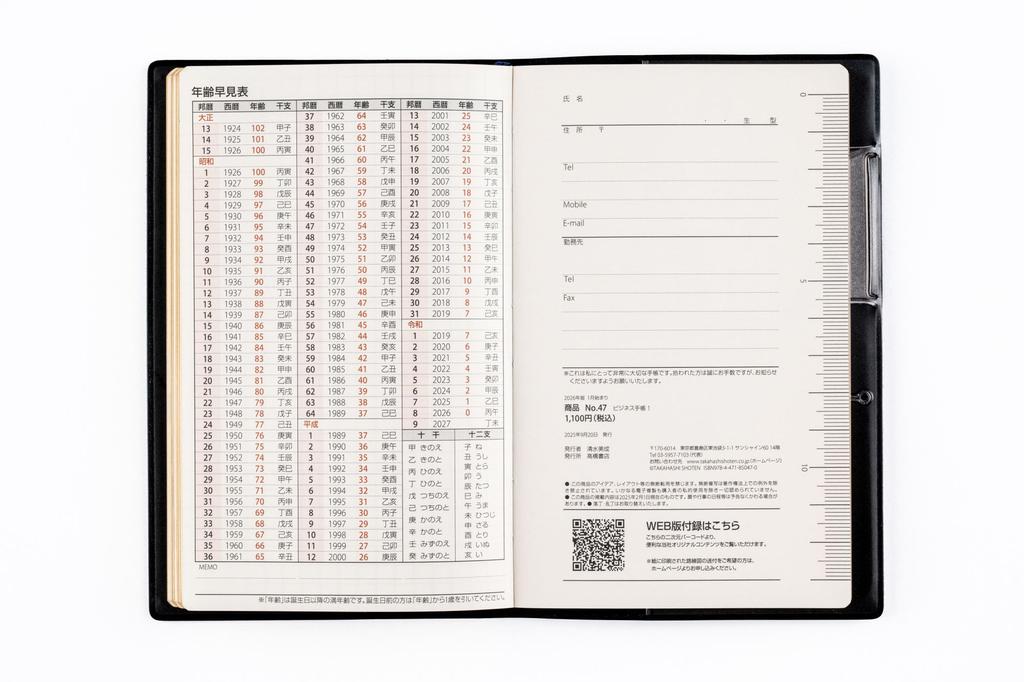 年齢早見表
邦暦 西暦 年齢 干支
大正
13 1924 102 甲子
14 1925 101 乙丑
15 1926 100 丙寅
昭和
1 1926 100 丙寅
2 1927 99 丁卯
3 1928 98 戊辰
4 1929 97 己巳
5 1930 96 庚午
6 1931 95 辛未
7 1932 94 壬申
8 1933 93 癸酉
9 1934 92 甲戌
10 1935 91 乙亥
11 1936 90 丙子
12 1937 89 丁丑
13 1938 88 戊寅
14 1939 87 己卯
15 1940 86 庚辰
16 1941 85 辛巳
17 1942 84 壬午
18 1943 83 癸未
19 1944 82 甲申
20 1945 81 乙酉
21 1946 80 丙戌
22 1947 79 丁亥
23 1948 78 戊子
24 1949 77 己丑
25 1950 76 庚寅
26 1951 75 辛卯
27 1952 74 壬辰
28 1953 73 癸巳
29 1954 72 甲午
30 1955 71 乙未
31 1956 70 丙申
32 1957 69 丁酉
33 1958 68 戊戌
34 1959 67 己亥
35 1960 66 庚子
36 1961 65 辛丑
邦暦 西暦 年齢 干支
37 1962 64 壬寅
38 1963 63 癸卯
39 1964 62 甲辰
40 1965 61 乙巳
41 1966 60 丙午
42 1967 59 丁未
43 1968 58 戊申
44 1969 57 己酉
45 1970 56 庚戌
46 1971 55 辛亥
47 1972 54 壬子
48 1973 53 癸丑
49 1974 52 甲寅
50 1975 51 乙卯
51 1976 50 丙辰
52 1977 49 丁巳
53 1978 48 戊午
54 1979 47 己未
55 1980 46 庚申
56 1981 45 辛酉
57 1982 44 壬戌
58 1983 43 癸亥
59 1984 42 甲子
60 1985 41 乙丑
61 1986 40 丙寅
62 1987 39 丁卯
63 1988 38 戊辰
64 1989 37 己巳
平成
1 1989 37 己巳
2 1990 36 庚午
3 1991 35 辛未
4 1992 34 壬申
5 1993 33 癸酉
6 1994 32 甲戌
7 1995 31 乙亥
8 1996 30 丙子
9 1997 29 丁丑
10 1998 28 戊寅
11 1999 27 己卯
12 2000 26 庚辰
邦暦 西暦 年齢 干支
13 2001 25 辛巳
14 2002 24 壬午
15 2003 23 癸未
16 2004 22 甲申
17 2005 21 乙酉
18 2006 20 丙戌
19 2007 19 丁亥
20 2008 18 戊子
21 2009 17 己丑
22 2010 16 庚寅
23 2011 15 辛卯
24 2012 14 壬辰
25 2013 13 癸巳
26 2014 12 甲午
27 2015 11 乙未
28 2016 10 丙申
29 2017 9 丁酉
30 2018 8 戊戌
31 2019 7 己亥
令和
1 2019 7 己亥
2 2020 6 庚子
3 2021 5 辛丑
4 2022 4 壬寅
5 2023 3 癸卯
6 2024 2 甲辰
7 2025 1 乙巳
8 2026 0 丙午
9 2027 丁未
十干
甲 きのえ
乙 きのと
丙 ひのえ
丁 ひのと
戊 つちのえ
己 つちのと
庚 かのえ
辛 かのと
壬 みずのえ
癸 みずのと
十二支
子 ね
丑 うし
寅 とら
卯 う
辰 たつ
巳 み
午 うま
未 ひつじ
申 さる
酉 とり
戌 いぬ
亥 い
MEMO
※「年齢」は誕生日以降の満年齢です。誕生日前の方は「年齢」から1歳を引いてください。
氏 名
・ ・ 生 型
住 所 〒
Tel
Mobile
E-mail
勤務先
Tel
Fax
※これは私にとって非常に大切な手帳です。拾われた方は誠にお手数ですが、お知らせ
くださいますようお願いいたします。
2026年版 1月始まり
商品 No.47 ビジネス手帳 1
1,100円(税込)
2025年9月20日 発行
発行者 清水美成
発行所 高橋書店
〒170-6014 東京都豊島区東池袋3-1-1 サンシャイン60 14階
Tel 03-5957-7103 (代表)
お問い合わせ先 www.takahashishoten.co.jp (ホームページ)
©TAKAHASHI SHOTEN ISBN978-4-471-85047-0
● この商品のアイデア、レイアウト等の無断転用を禁じます。無断複写は著作権法上での例外を除
き禁止されています。いかなる電子複製も購入者の私的使用を除き一切認められていません。
● この商品の掲載内容は2025年2月1日現在のものです。暦や行事の日程等は予告なくかわる場合が
あります。● 落丁・乱丁はお取り替えいたします。
WEB版付録はこちら
こちらの二次元バーコードより、
便利な当社オリジナルコンテンツをご覧いただけます。
※紙に印刷された路線図の送付をご希望の方は、
ホームページよりお申し込みください。
0
5
10